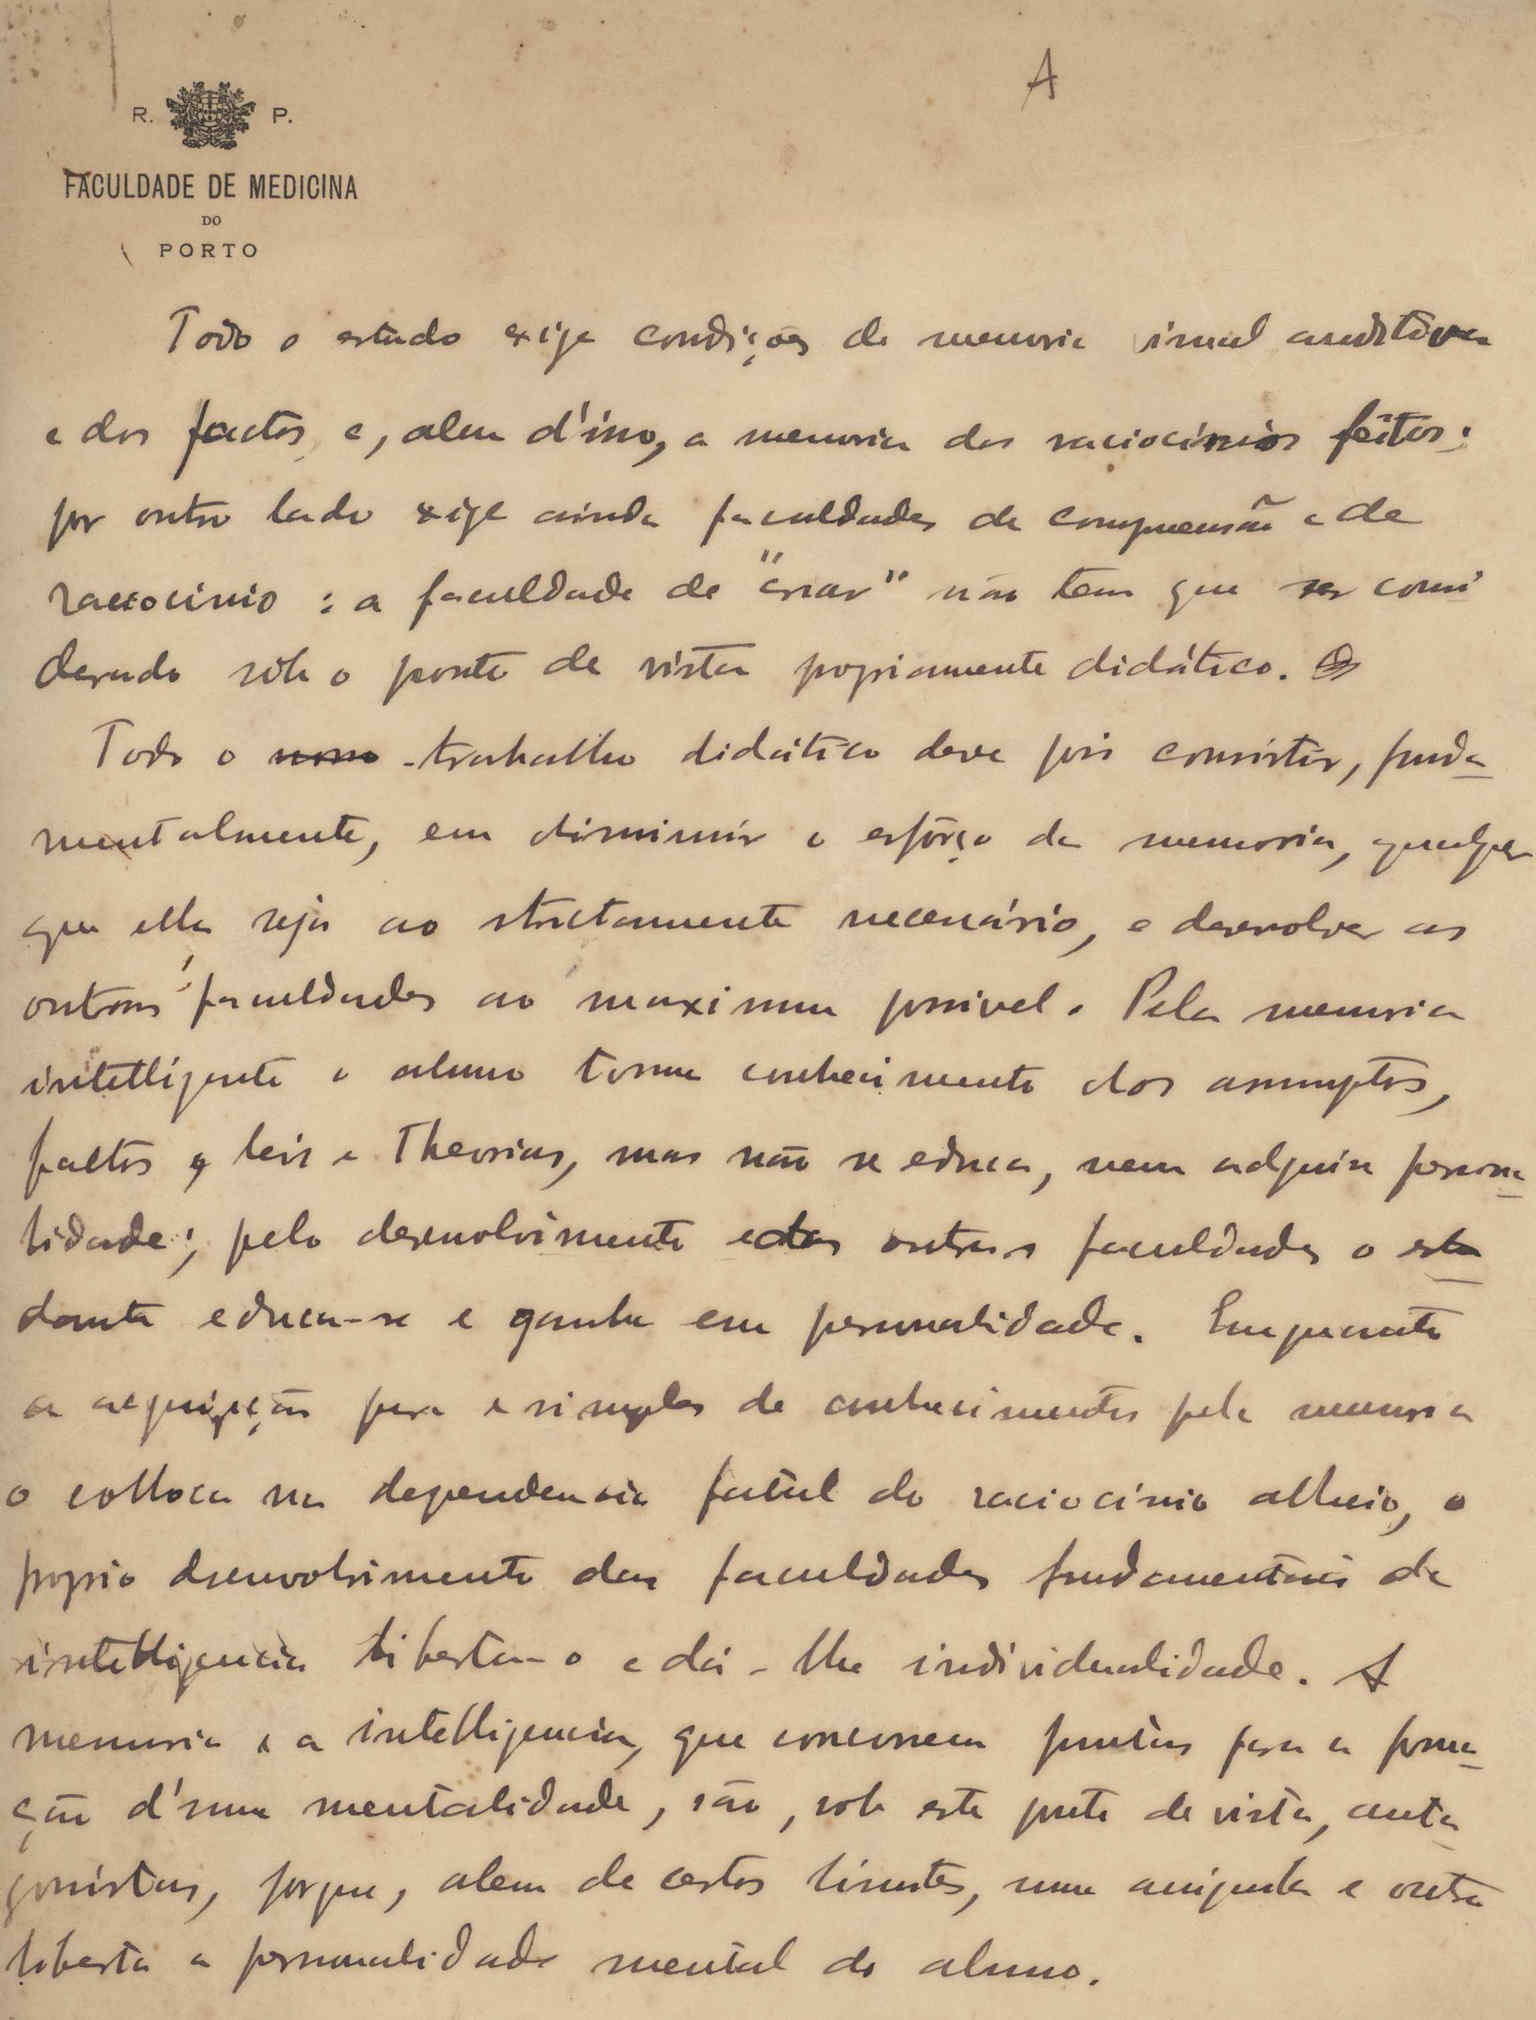 A
R. P.
FACULDADE DE MEDICINA
DO
PORTO
Todo o estudo exige condições de memoria visual auditiva
e dos factos e, alem d'isso, a memoria dos raciocinios feitos;
por outro lado exige ainda faculdades de comprensão e de
raciocinio : a faculdade de "criar" não tem que ser consi
derado sôb o ponto de vista propriamente didático.
Todo o nosso trabalho didático deve pois consistir, funda-
mentalmente, em diminuir o esfôrço da memoria, qualquer
que ella seja ao strictamente necessário, e desenvolver as
outras faculdades ao maximum possivel. Pela memoria
intelligente o aluno toma conhecimento dos assumptos,
factos, leis e Theorias, mas não se educa, nem adquire persona-
lidade; pelo desenvolvimento das outras faculdades o estu-
dante educa-se e ganha em personalidade. Emquanto
a acquisição pura e simples de conhecimentos pela memoria
o colloca na dependencia fatal do raciocinio alheio, o
proprio desenvolvimento das faculdades fundamentais da
intelligencia liberta-o e dá-lhe individualidade. A
memoria e a intelligencia, que concorrem juntas para a forma-
ção d'uma mentalidade, são, sob este ponto de vista, anta-
gonistas, porque, alem de certos limites, uma e outra
liberta a personalidade mental do aluno.